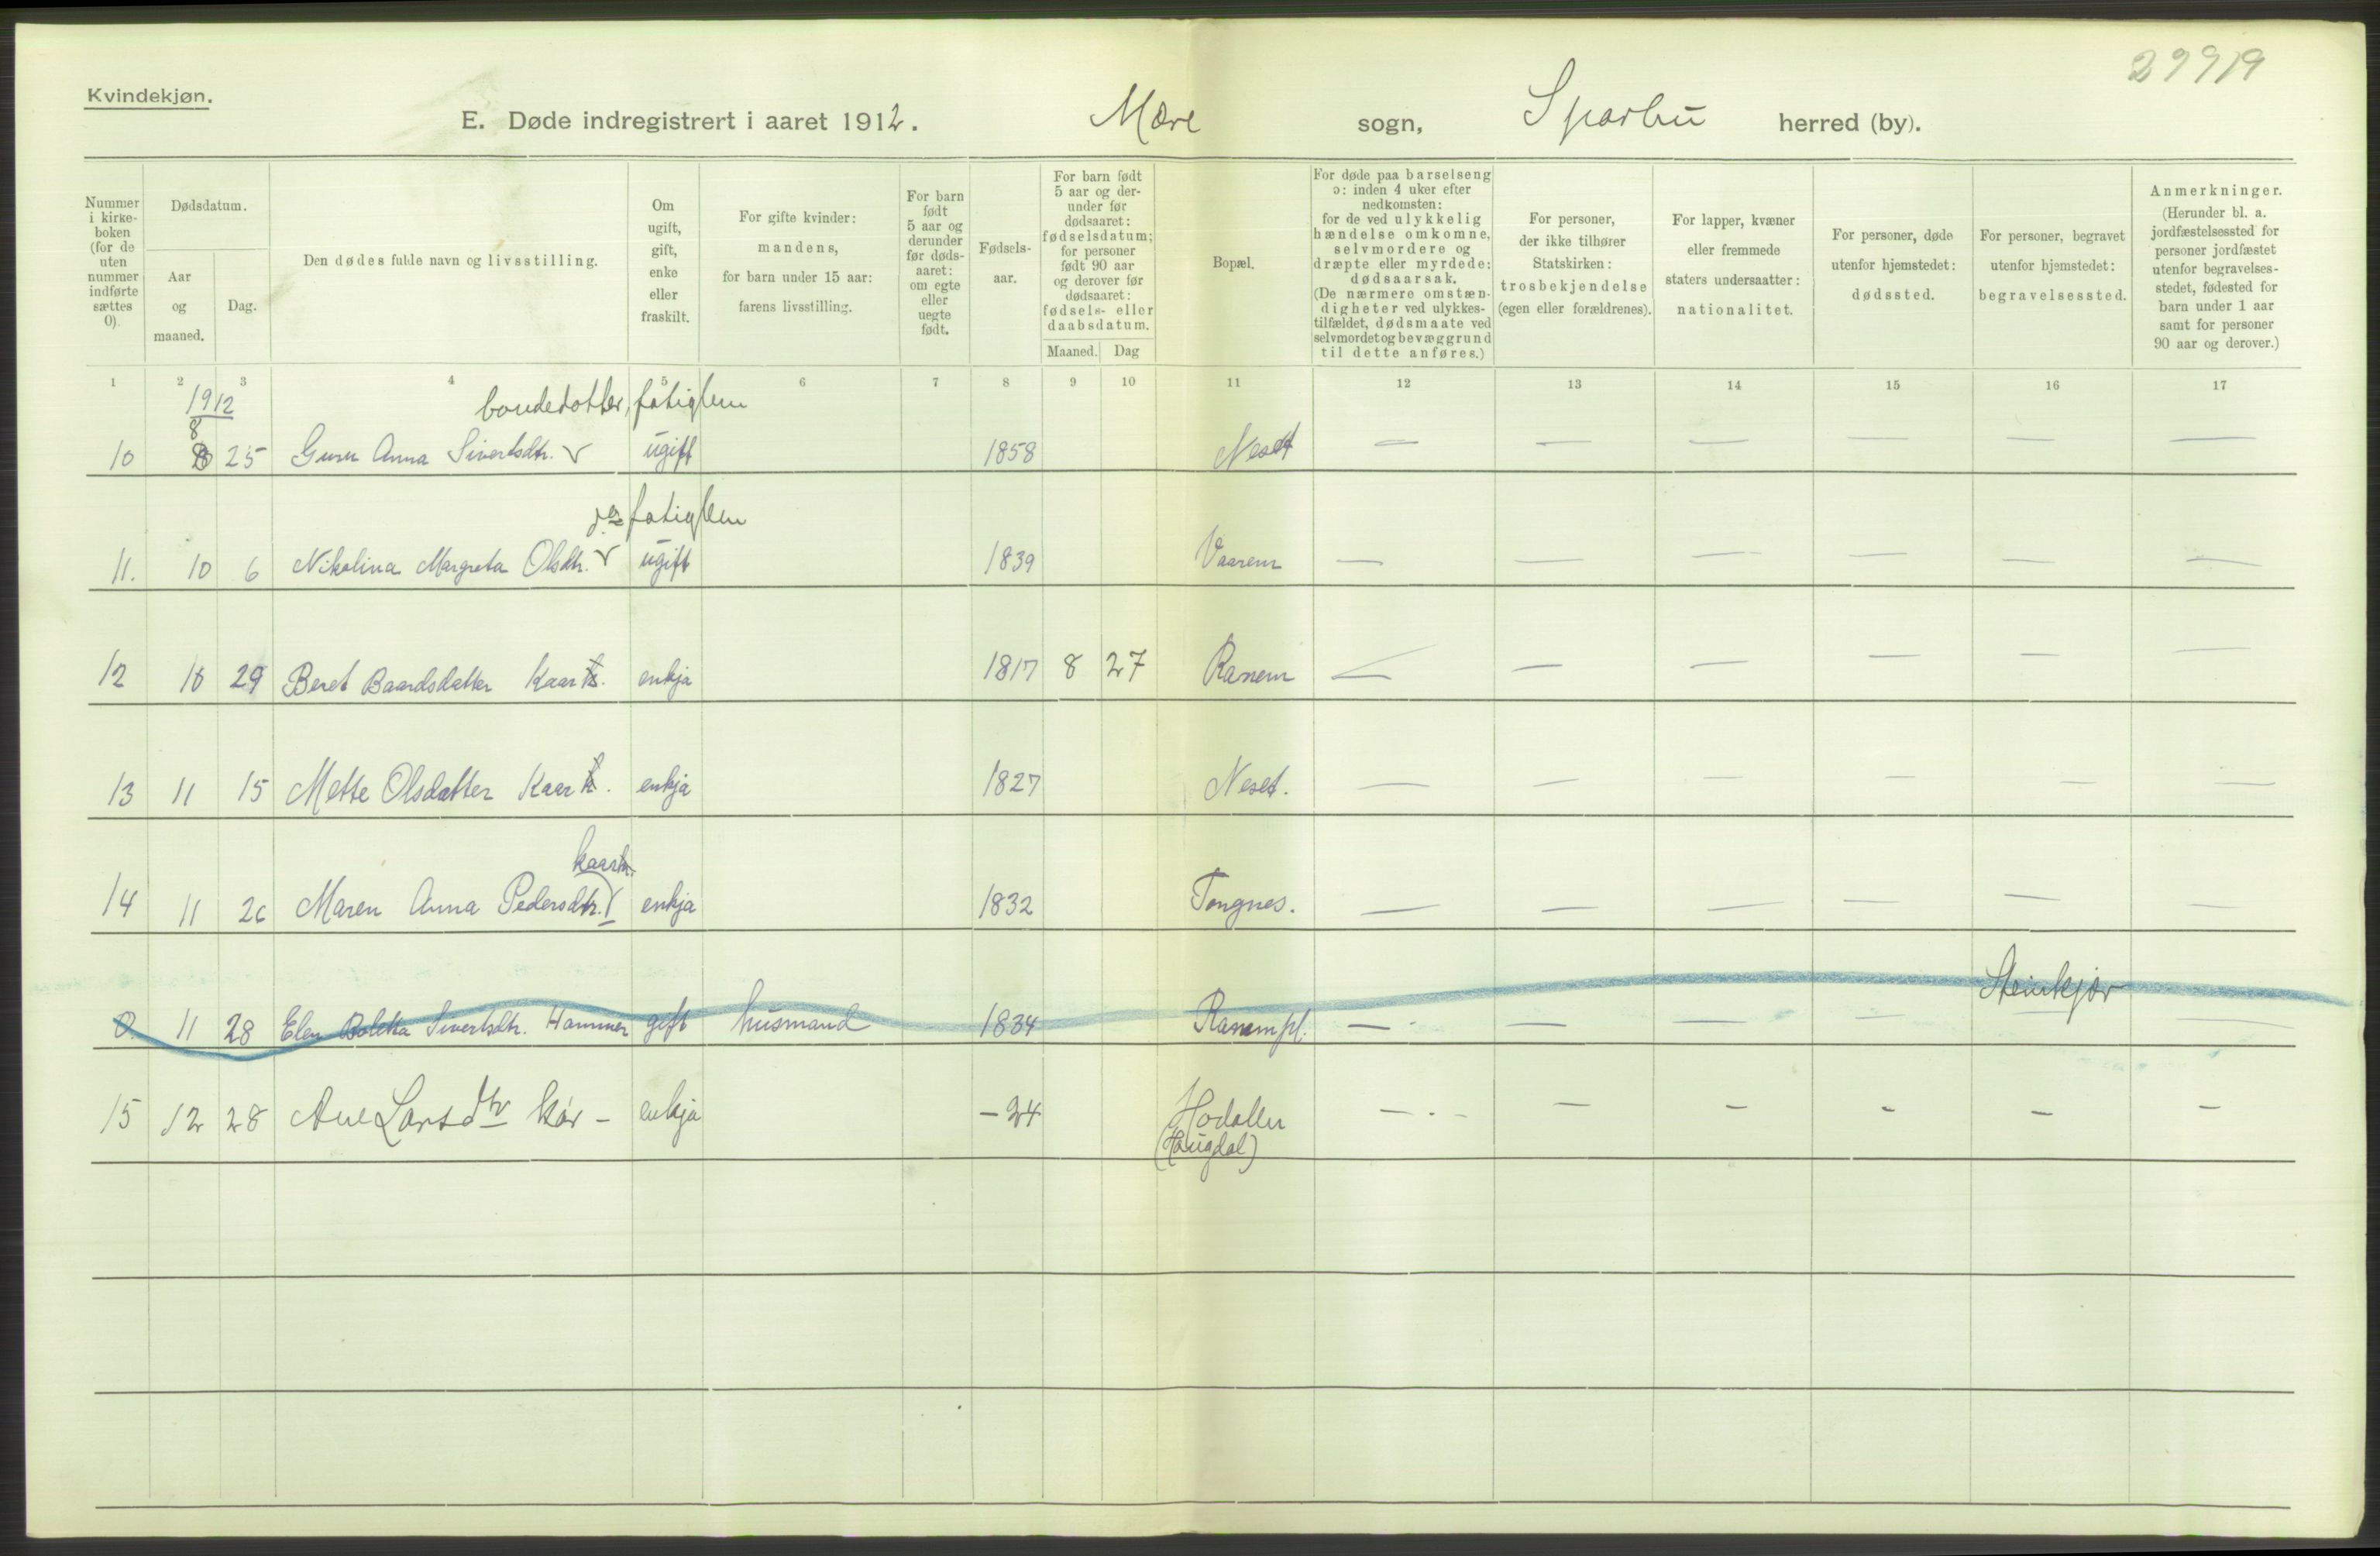 29919
Kvindekjøn.
E. Døde indregistrert i aaret 1912. Mære sogn, Sparbu herred (by).
Nummer i kirke-boken (for de uten nummer indførte sættes 0).
Dødsdatum.
Aar og maaned.
Dag.
Den dødes fulde navn og livsstilling.
Om ugift, gift, enke eller fraskilt.
For gifte kvinder: mandens, for barn under 15 aar: farens livsstilling.
For barn født 5 aar og derunder før døds-aaret: om egte eller uegte født.
Fødsels-aar.
For barn født 5 aar og der-under før dødsaaret: fødselsdatum; for personer født 90 aar og derover før dødsaaret: fødsels- eller daabsdatum.
Maaned. Dag
Bopæl.
For døde paa barselseng ɔ: inden 4 uker efter nedkomsten: for de ved ulykkelig hændelse omkomne, selvmordere og dræpte eller myrdede: dødsaarsak. (De nærmere omstæn-digheter ved ulykkes-tilfældet, dødsmaate ved selvmordet og bevæggrund til dette anføres.)
For personer, der ikke tilhører Statskirken: trosbekjendelse (egen eller forældrenes).
For lapper, kvæner eller fremmede staters undersaatter: nationalitet.
For personer, døde utenfor hjemstedet: dødssted.
For personer, begravet utenfor hjemstedet: begravelsessted.
Anmerkninger. (Herunder bl. a. jordfæstelsessted for personer jordfæstet utenfor begravelses-stedet, fødested for barn under 1 aar samt for personer 90 aar og derover.)
1 2 3 4 5 6 7 8 9 10 11 12 13 14 15 16 17
1912 bondedotter, fatiglem
8
10 25 Guru Anna Sivertsdtr. ugift 1858 Neset — — — — — —
fatiglem
11. 10 6 Nikolina Margreta Olsdtr. ugift 1839 Vaarem — — — — — —
12 10 29 Beret Baardsdatter Kaark. enkja 1817 8 27 Ranem — — — — — —
13 11 15 Mette Olsdatter Kaark. enkja 1827 Neset. — — — — — —
kaark.
14 11 26 Maren Anna Pedersdtr. enkja 1832 Tongnes. — — — — — —
0. 11 28 Elen Boletta Sivertsdtr. Hammer gift husmand 1834 Ranem pl. — — — — Steinkjær —
15 12 28 Ane Larsdtr kår – enkja – 24 Hodallu — — — — — —
(Haugdal)